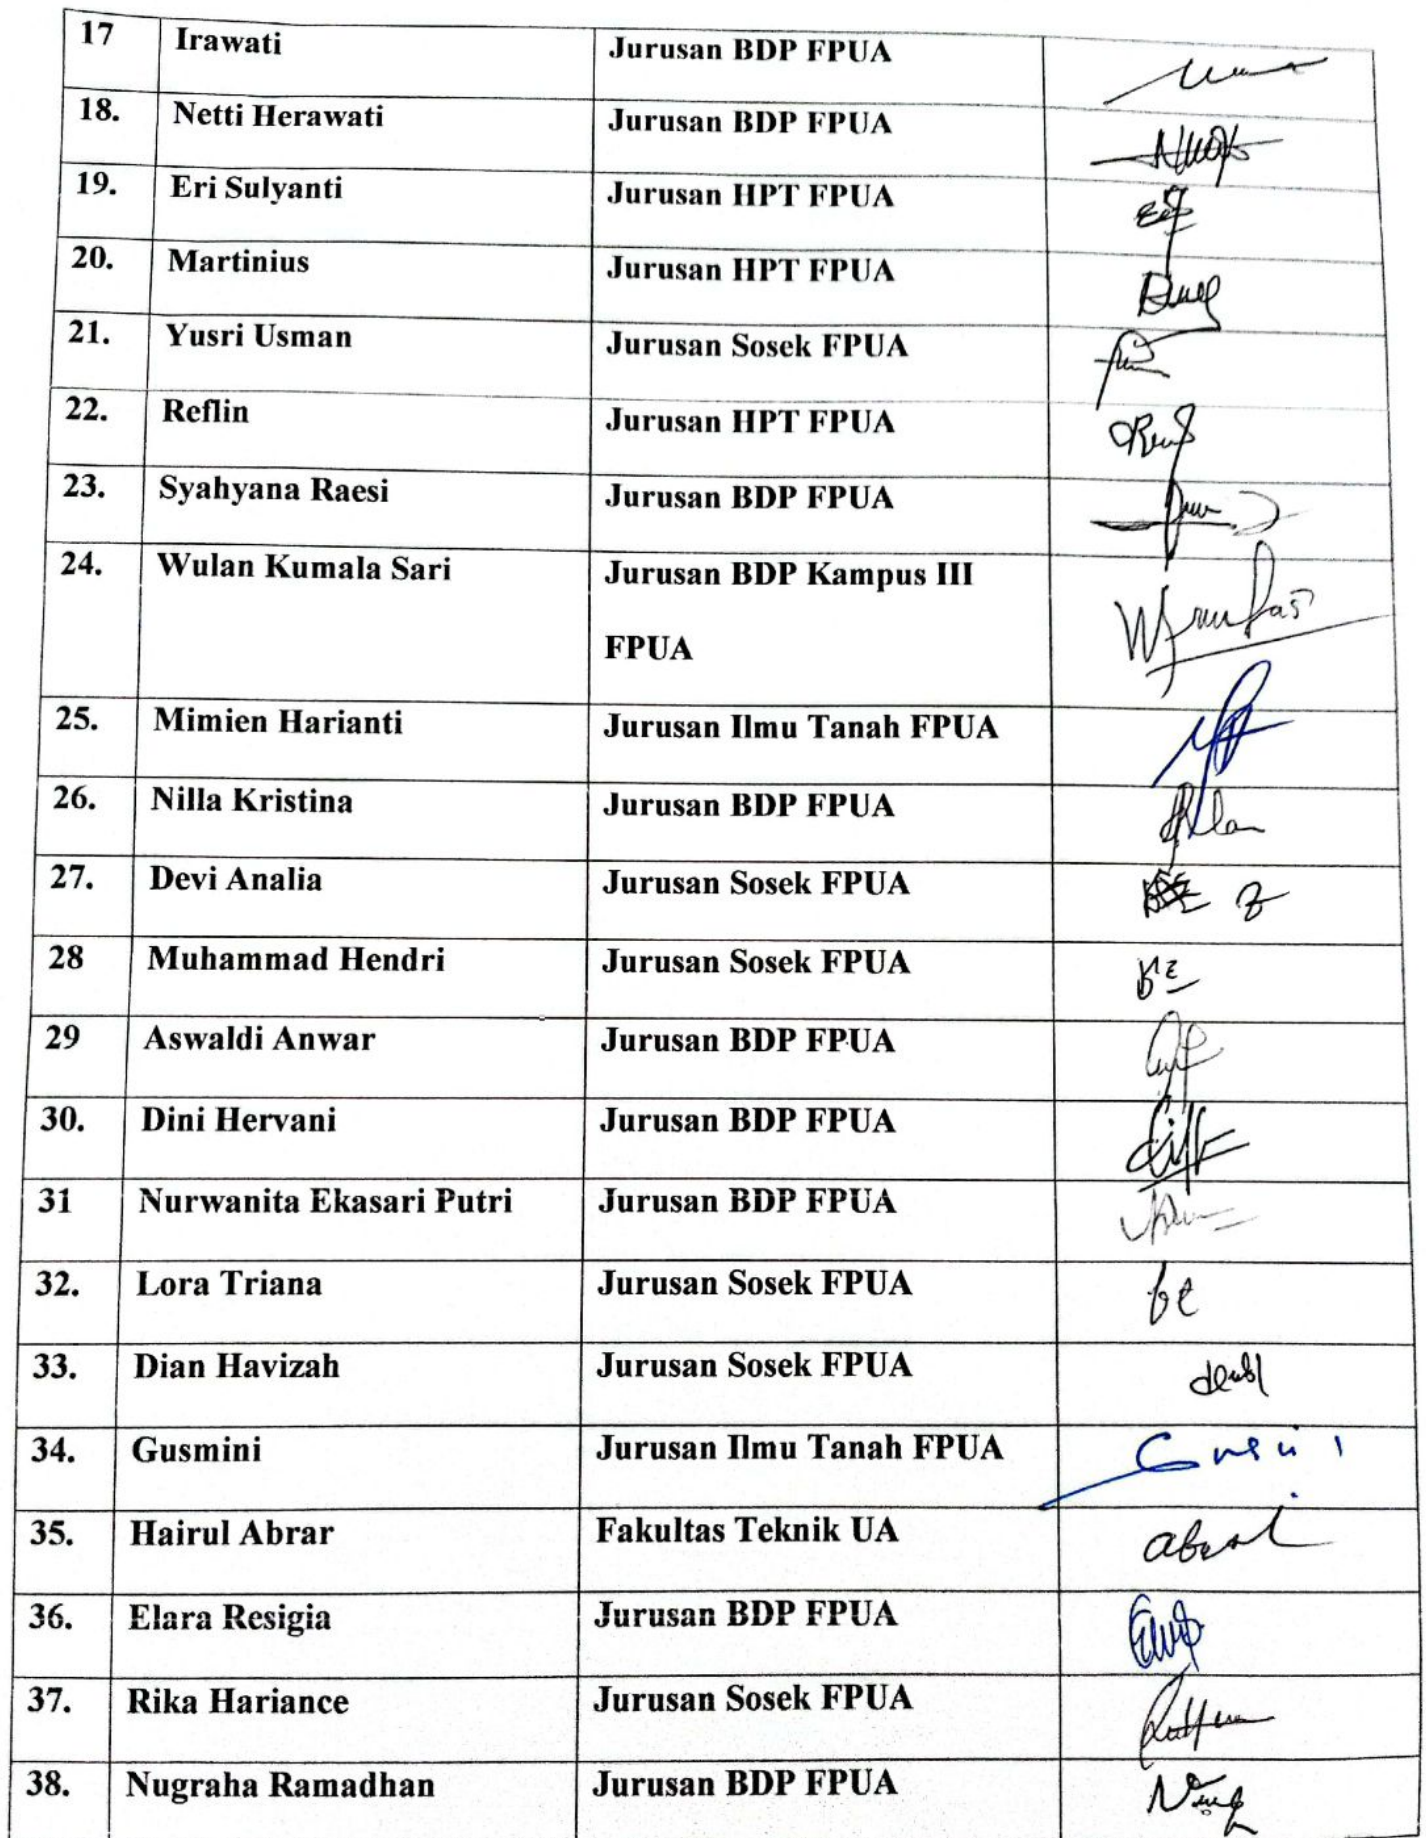 17 Irawati Jurusan BDP FPUA
18. Netti Herawati Jurusan BDP FPUA
19. Eri Sulyanti Jurusan HPT FPUA
20. Martinius Jurusan HPT FPUA
21. Yusri Usman Jurusan Sosek FPUA
22. Reflin Jurusan HPT FPUA
23. Syahyana Raesi Jurusan BDP FPUA
24. Wulan Kumala Sari Jurusan BDP Kampus III
FPUA
25. Mimien Harianti Jurusan Ilmu Tanah FPUA
26. Nilla Kristina Jurusan BDP FPUA
27. Devi Analia Jurusan Sosek FPUA
28 Muhammad Hendri Jurusan Sosek FPUA
29 Aswaldi Anwar Jurusan BDP FPUA
30. Dini Hervani Jurusan BDP FPUA
31 Nurwanita Ekasari Putri Jurusan BDP FPUA
32. Lora Triana Jurusan Sosek FPUA
33. Dian Havizah Jurusan Sosek FPUA
34. Gusmini Jurusan Ilmu Tanah FPUA
35. Hairul Abrar Fakultas Teknik UA
36. Elara Resigia Jurusan BDP FPUA
37. Rika Hariance Jurusan Sosek FPUA
38. Nugraha Ramadhan Jurusan BDP FPUA